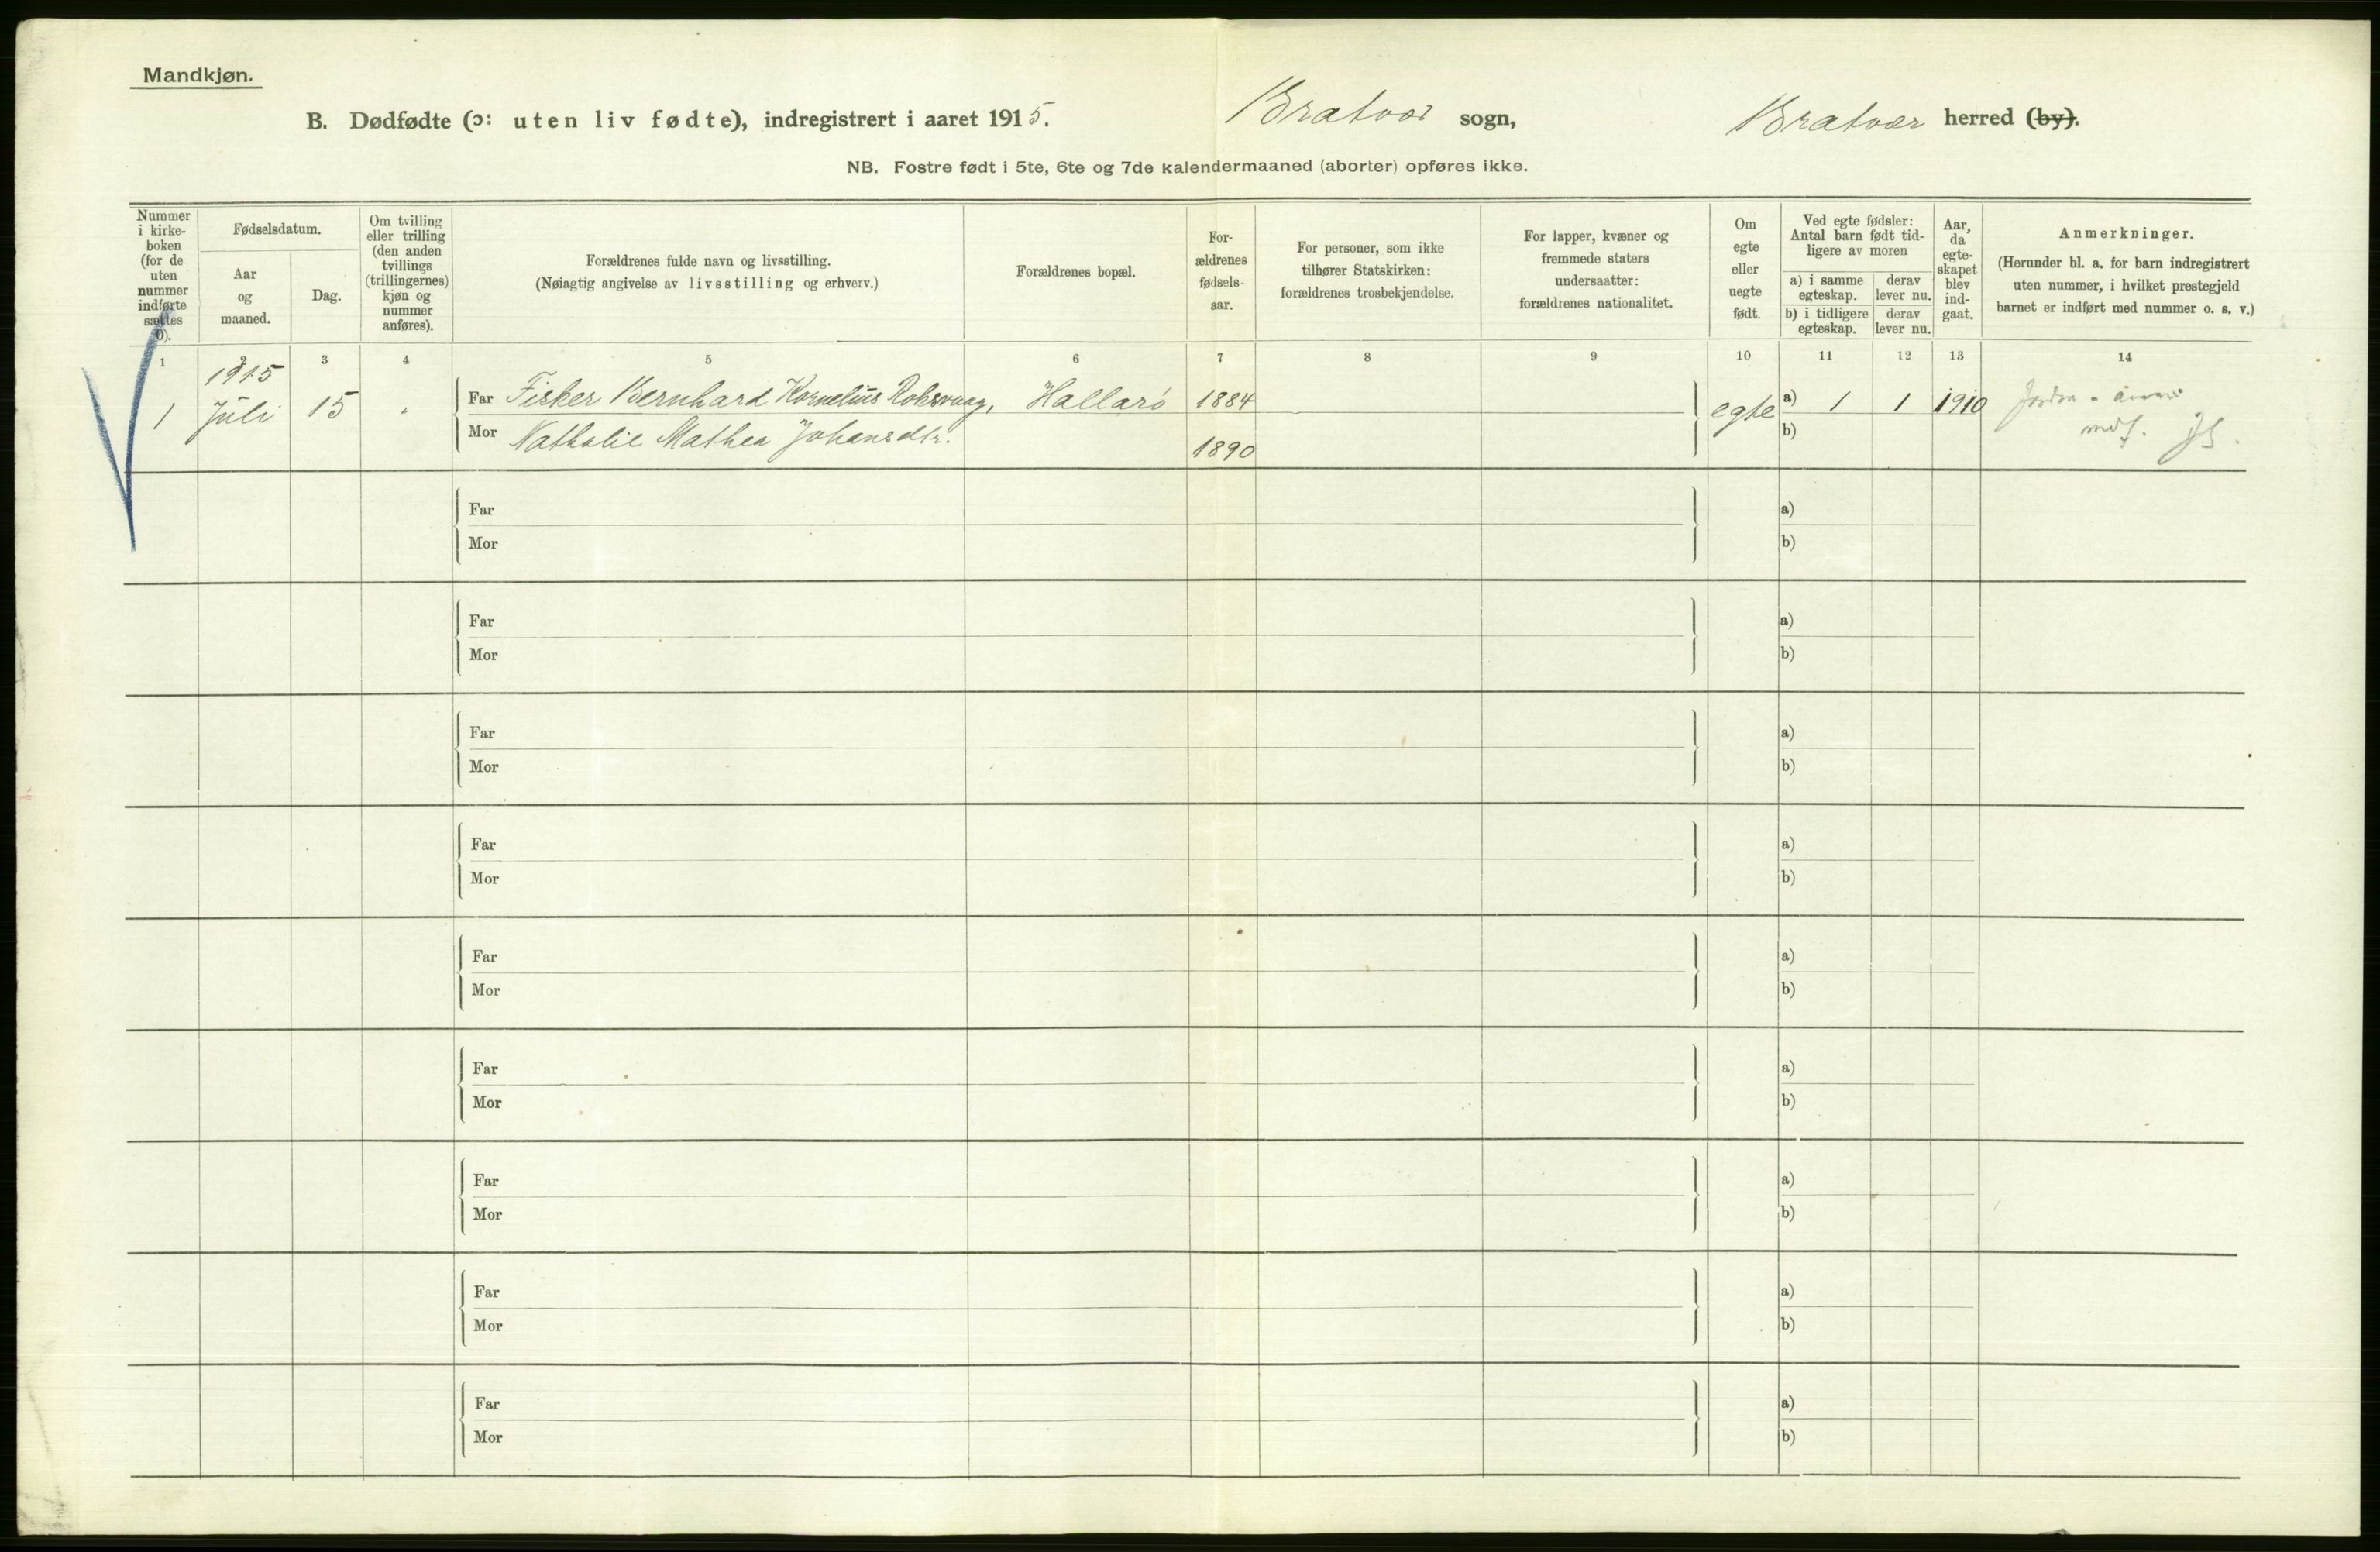 Mandkjøn.
B. Dødfødte (ɔ: uten liv fødte), indregistrert i aaret 1915. Bratvær sogn, Bratvær herred (by).
NB. Fostre født i 5te, 6te og 7de kalendermaaned (aborter) opføres ikke.
Nummer
i kirke-
boken
(for de
uten
nummer
indførte
sættes
0).
Fødselsdatum.
Aar
og
maaned.
Dag.
Om tvilling
eller trilling
(den anden
tvillings
(trillingernes)
kjøn og
nummer
anføres).
Forældrenes fulde navn og livsstilling.
(Nøiagtig angivelse av livsstilling og erhverv.)
Forældrenes bopæl.
For-
ældrenes
fødsels-
aar.
For personer, som ikke
tilhører Statskirken:
forældrenes trosbekjendelse.
For lapper, kvæner og
fremmede staters
undersaatter:
forældrenes nationalitet.
Om
egte
eller
uegte
født.
Ved egte fødsler:
Antal barn født tid-
ligere av moren
a) i samme
egteskap.
derav
lever nu.
b) i tidligere
egteskap.
derav
lever nu.
Aar,
da
egte-
skapet
blev
ind-
gaat.
Anmerkninger.
(Herunder bl. a. for barn indregistrert
uten nummer, i hvilket prestegjeld
barnet er indført med nummer o. s. v.)
1 2 3 4 5 6 7 8 9 10 11 12 13 14
1915
1 Juli 15 " Far Fisker Bernhard Kornelius Roksvaag, Hallarø 1884 egte a) 1 1 1910
Mor Nathalie Mathea Johansdtr. 1890 b)
Far a)
Mor b)
Far a)
Mor b)
Far a)
Mor b)
Far a)
Mor b)
Far a)
Mor b)
Far a)
Mor b)
Far a)
Mor b)
Far a)
Mor b)
Far a)
Mor b)